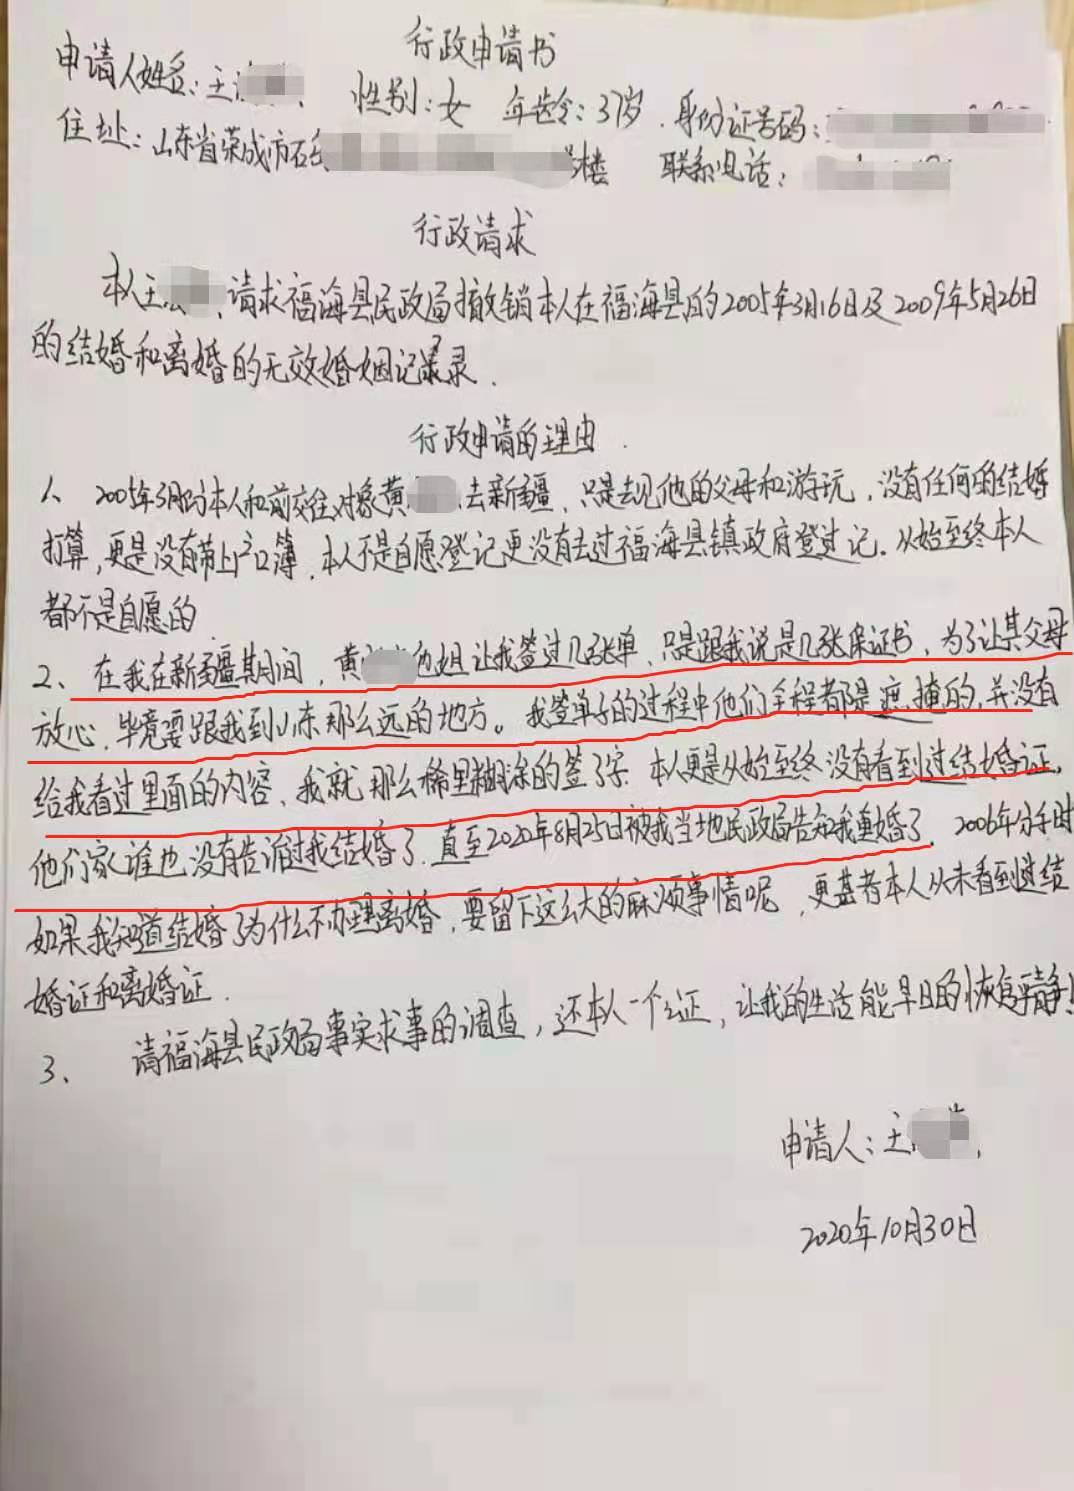 行政申请书
申请人姓名：王 性别：女 年龄：37岁．身份证号码：
住址：山东省荣成市石 楼 联系电话：
行政请求
本人王 ，请求福海县民政局撤销本人在福海县的2005年3月16日及2009年5月26日
的结婚和离婚的无效婚姻记录录．
行政申请的理由．
1、2005年3月时本人和前交往对象黄 去新疆，只是去见他的父母和游玩，没有任何的结婚
打算，更是没有带上户口簿，本人不是自愿登记更没有去过福海县镇政府登过记．从始至终本人
都不是自愿的
2、在我在新疆期间，黄 他姐让我签过几张单，只是跟我说是几张保证书，为了让其父母
放心，毕竟要跟我到山东那么远的地方。我签单子的过程中他们全程都是遮掩的，并没有
给我看过里面的内容、我就那么稀里糊涂的签了字．本人更是从始至终没有看到过结婚证，
他们家谁也没有告诉过我结婚了．直至2020年8月25日被我当地民政局告知我重婚了．2006年分手时
如果我知道结婚了为什么不办理离婚，要留下这么大的麻烦事情呢，更甚者本人从未看到过结
婚证和离婚证．
3、请福海县民政局事实求事的调查，还本人一个公证，让我的生活能早日的恢复平静！
申请人：王
2020年10月30日